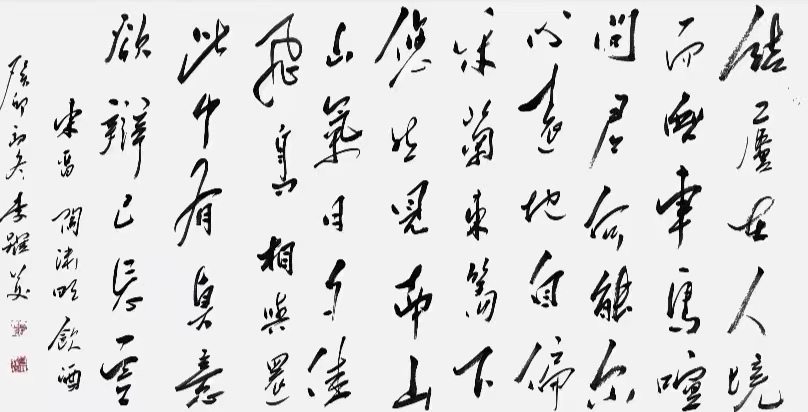 結廬在人境
而無車馬喧
問君何能尔
心遠地自偏
采菊東篱下
悠然見南山
山氣日夕佳
飛鳥相與還
此中有真意
欲辯已忘言
东晋陶淵明飲酒
癸卯初冬李躍